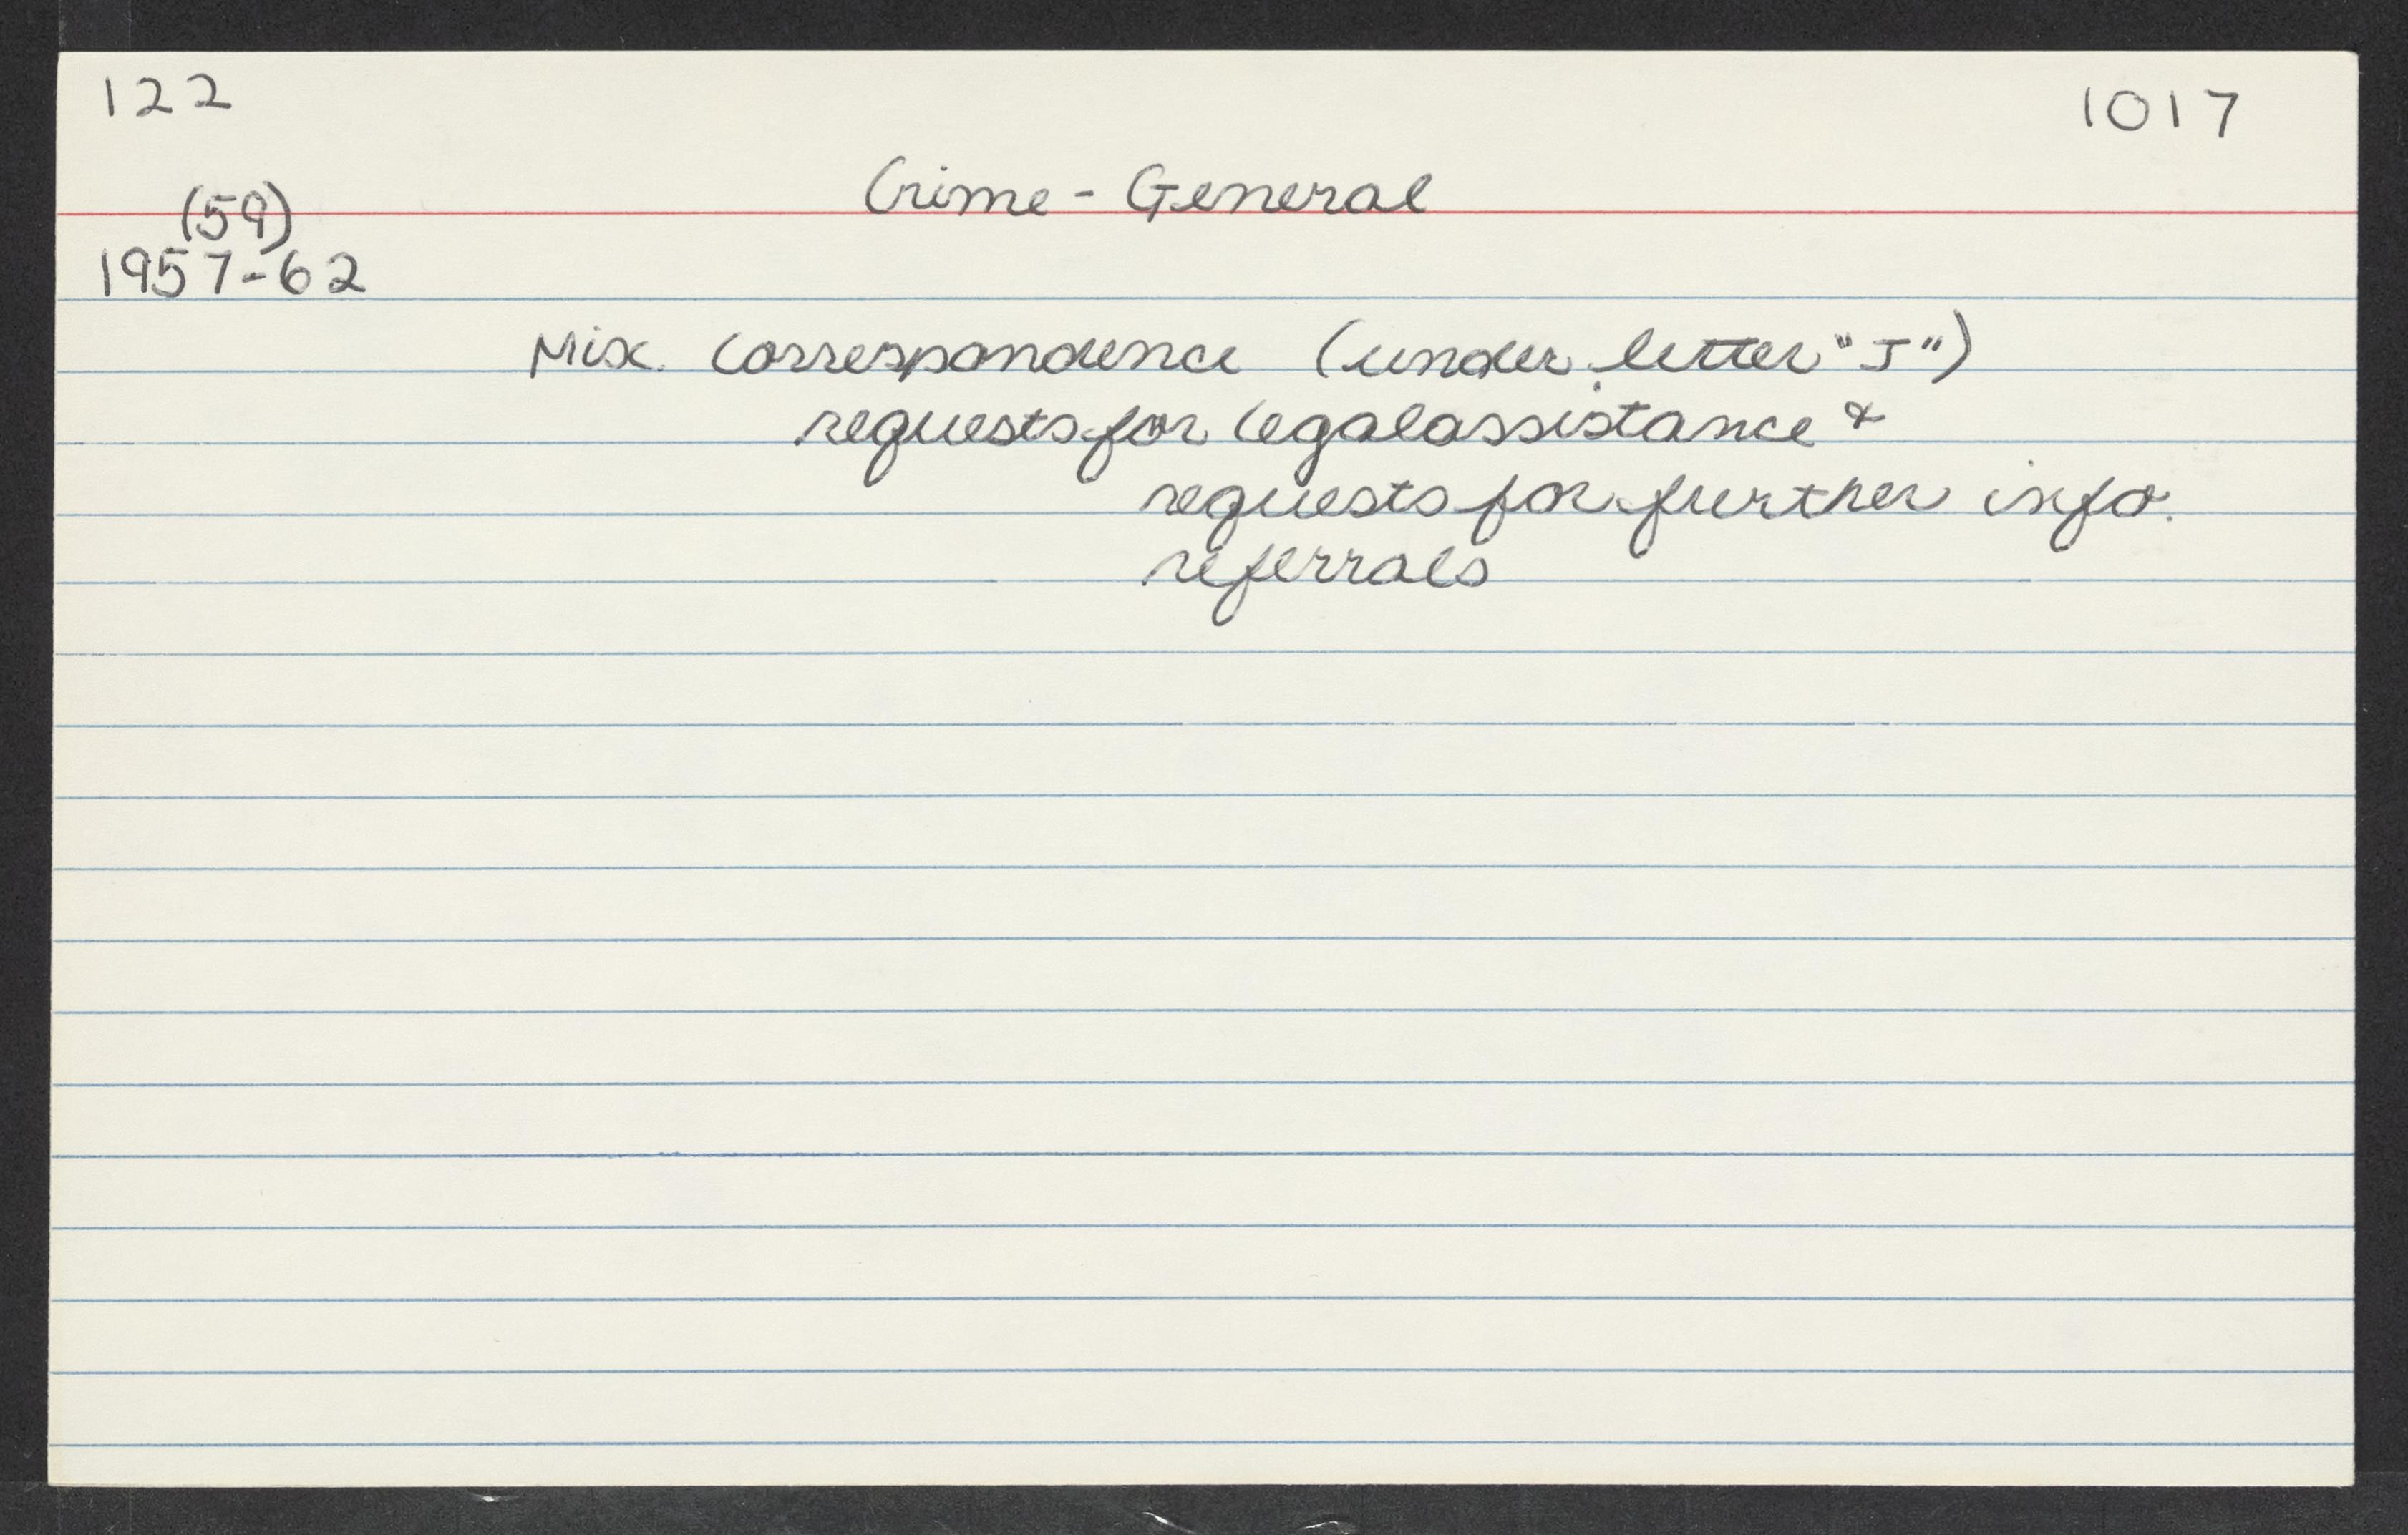 122 1017
Crime - General
(59)
1957-62
Misc. Correspondence (under letter "J")
requests for legal assistance &
requests for further info.
referrals